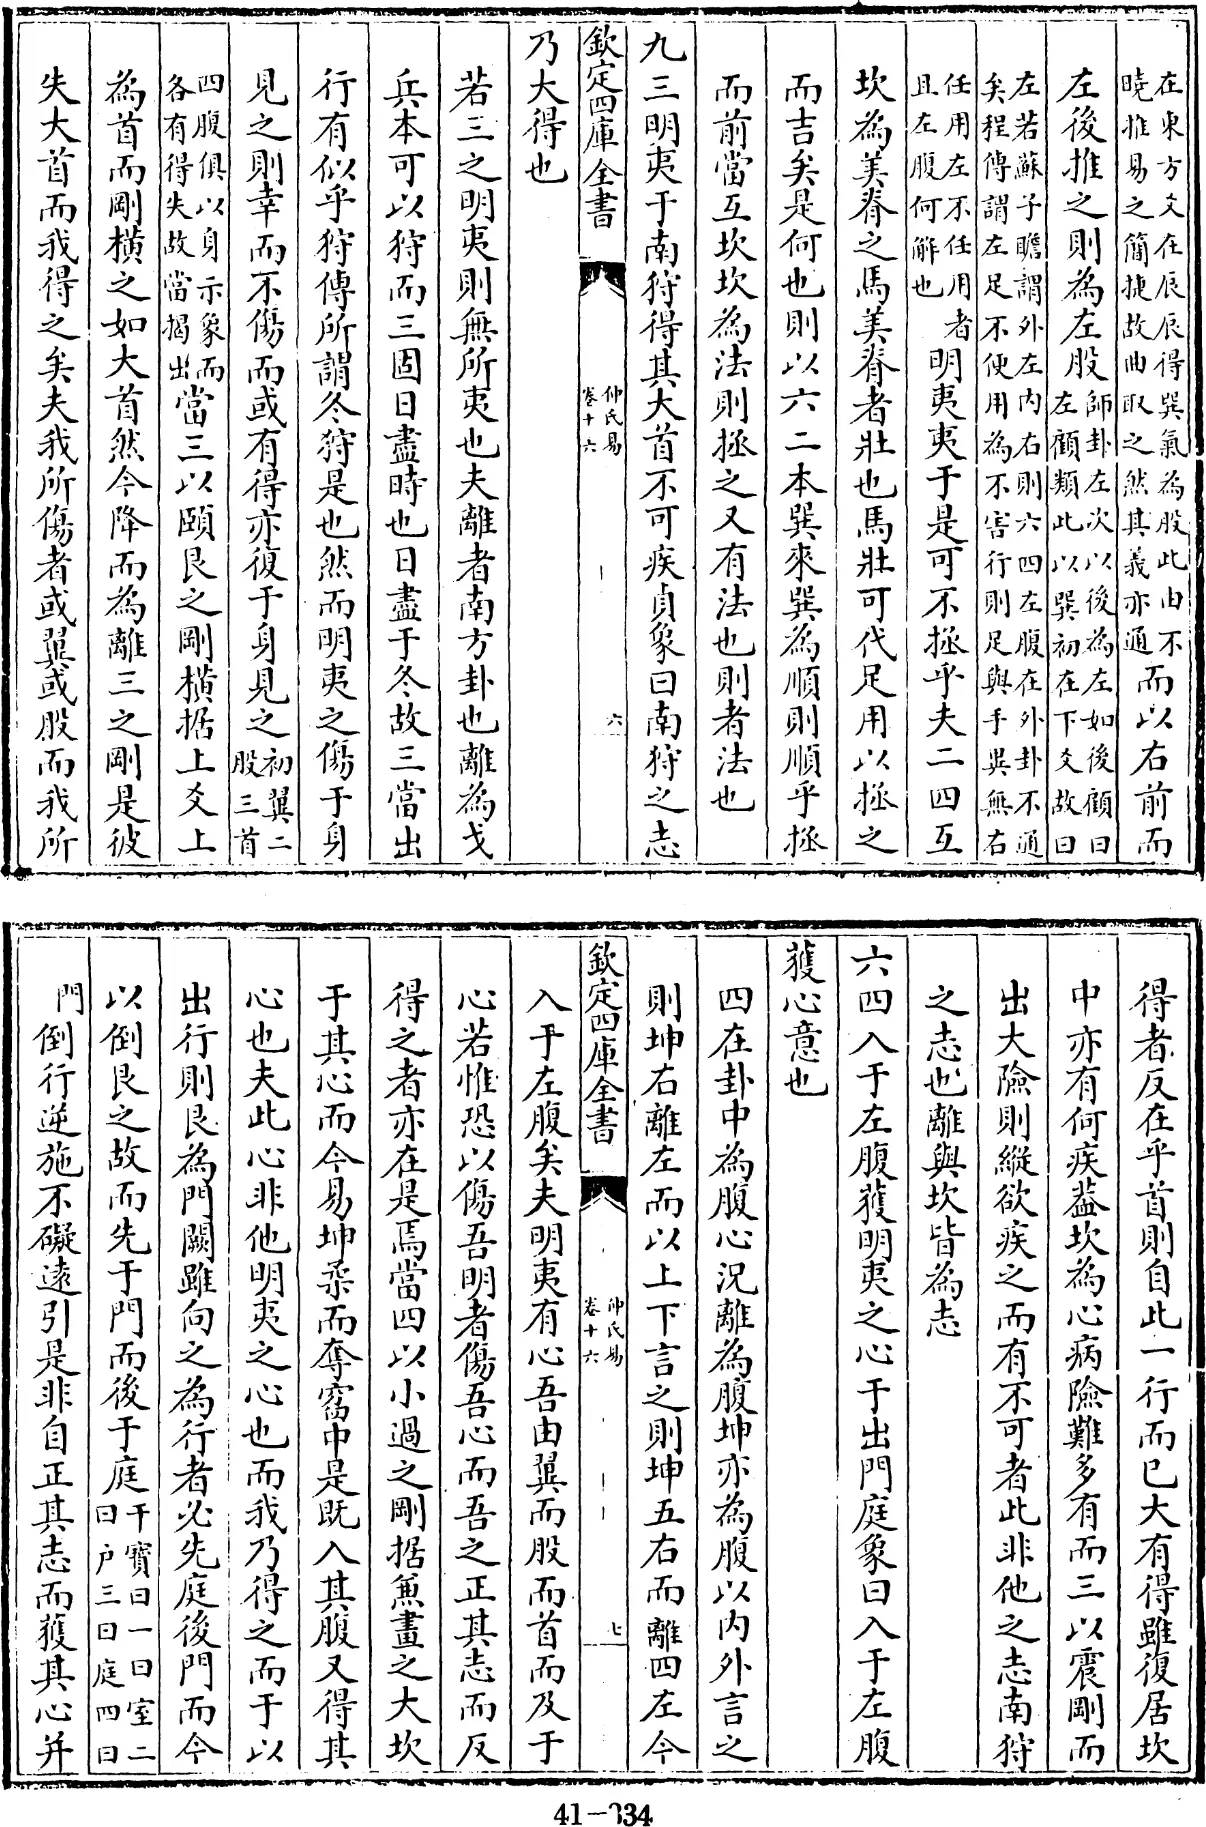 在東方爻在辰辰得巽氣為股此由不曉推易之簡捷故曲取之然其義亦通而以右前而
左後推之則為左股師卦左次以後為左如後顧曰左顧類此以巽初在下爻故曰
左若蘇子瞻謂外左内右則六四左腹在外卦不通矣程傳謂左足不便用為不害行則足與手異無右
任用左不任用者且左腹何解也明夷夷于是可不拯乎夫二四互
坎為美脊之馬美脊者壯也馬壯可代足用以拯之
而吉矣是何也則以六二本巽來巽為順則順乎拯
而前當互坎坎為法則拯之又有法也則者法也
九三明夷于南狩得其大首不可疾貞象曰南狩之志
欽定四庫全書 仲氏易 卷十六 六
乃大得也
若三之明夷則無所夷也夫離者南方卦也離為戈
兵本可以狩而三固日盡時也日盡于冬故三當出
行有似乎狩傳所謂冬狩是也然而明夷之傷于身
見之則幸而不傷而或有得亦復于身見之初翼二股三首
四腹俱以身示象而各有得失故當揭出當三以頤艮之剛橫据上爻上
為首而剛橫之如大首然今降而為離三之剛是彼
失大首而我得之矣夫我所傷者或翼或股而我所
得者反在乎首則自此一行而已大有得雖復居坎
中亦有何疾葢坎為心病險難多有而三以震剛而
出大險則縱欲疾之而有不可者此非他之志南狩
之志也離與坎皆為志
六四入于左腹獲明夷之心于出門庭象曰入于左腹
獲心意也
四在卦中為腹心況離為腹坤亦為腹以内外言之
則坤右離左而以上下言之則坤五右而離四左今
欽定四庫全書 仲氏易 卷十六 七
入于左腹矣夫明夷有心吾由翼而股而首而及于
心若惟恐以傷吾明者傷吾心而吾之正其志而反
得之者亦在是焉當四以小過之剛据蒹畫之大坎
于其心而今易坤柔而奪窩中是既入其腹又得其
心也夫此心非他明夷之心也而我乃得之而于以
出行則艮為門闕雖向之為行者必先庭後門而今
以倒艮之故而先于門而後于庭干寶曰一曰室二曰戶三曰庭四曰
門倒行逆施不礙遠引是非自正其志而獲其心并
41-334